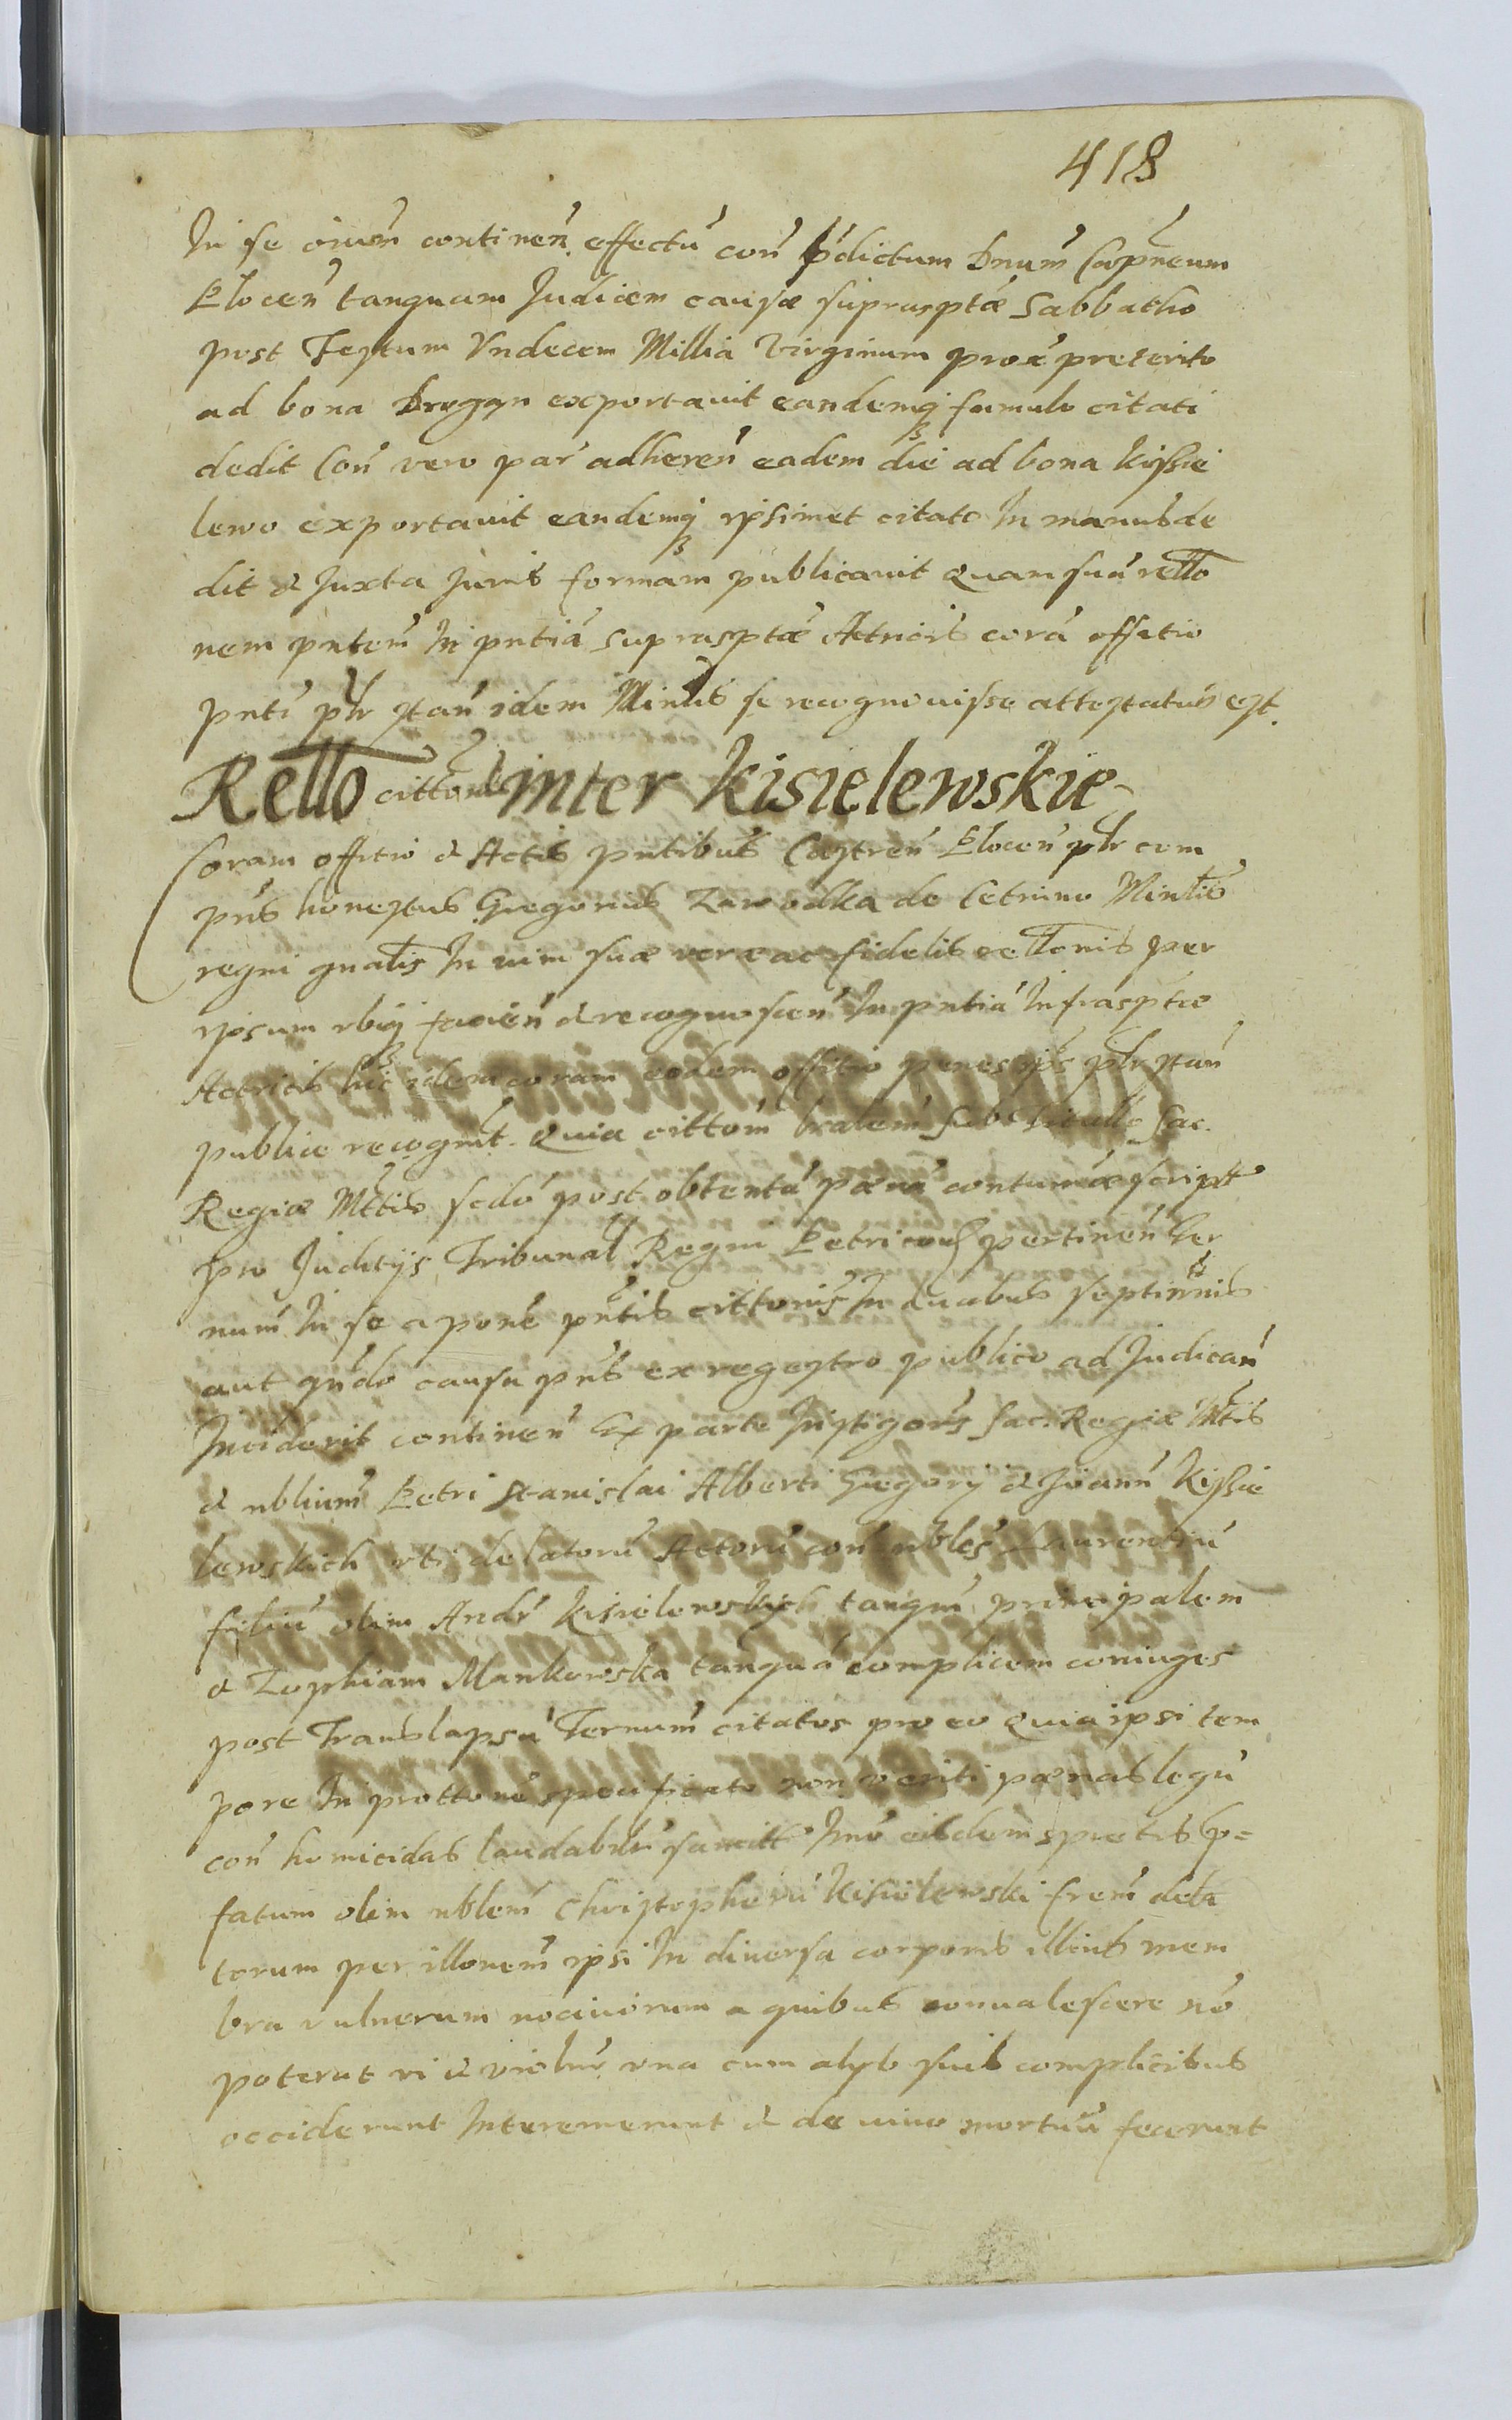 418
In se eiusm̃ continen̄ effectū con̄ p̄dictum Dnum̄ Capn̄eum
Plocen̄ tanquam Judicem causæ suprasptæ Sabbatho
post Festum Vndecem Millia Virginum prox̄e preterito
ad bona Drogyn exportauit eandemq; famulo citati
dedit Con̄ vero par̄ adheren̄ eadem die ad bona Kissie
lewo exportauit eandemq; ipsimet citato In manus de
dit & Juxta Juris formam publicauit Quam suā rello
nem pntem̄ In pntiā suprasptæ Actricis corā offitio
pnti pltr stan̄ idem Minlis se recognouisse attestatus est.
Rello cittonis inter Kisielewskie
Coram offitio & Actis pntibus Castren̄ Plocen̄ pltr com
pns honestus Gregorius Zawodka de Cetnino Minlis
regni gnalis In uim suæ veræ ac fidelis rellonis per
ipsum vbiq; facien̄ & recognoscen̄ In pntiā Infrasptæ
Actricis hic idem coram eodem offitio penes ips̄ pltr stan̄
publice recognit. Quia cittom̄ lralem̄ sub titullo Sac.
Regiæ Mttis scdō post obtentā pænā contumaæ script
pro Juditijs Tribunal Regni Petricoū pertinen̄ Ter
num̄ In se a pone pntis cittonis In duabus septimnis
aut qn̄do causa pns ex regestro publico ad Judican̄
Inciderit continen̄ Ex parte Instigoris Sac. Regiæ Mttis
& nblium̄ Petri Stanislai Alberti Gregorij & Joann̄ Kissie
lewskich vti delatorū Actorū con̄ nbles Laurentiū
filiū olim Andr̄ Kisielewskich tanqm̄ principalem
& Zophiam Mankowska tanquā complicem coniuges
post Translapsū Ternum̄ citatos pro eo Quia ipsi tem
pore In prottone specificato non veriti pænas legū
con̄ homicidas laudabilr̄ sancitt Imo eisdem spretis p=
fatum olim nblem̄ Christopherū Kisielewski frem̄ dela
torum per illonem̄ ipsi In diuersa corporis illius mem
bra vulnerum nociuorum a quibus conualescere nō
poterat vi & violenr̄ vna cum alys suis complicibus
occiderunt Interemerunt & de uiuo mortuū fecerunt